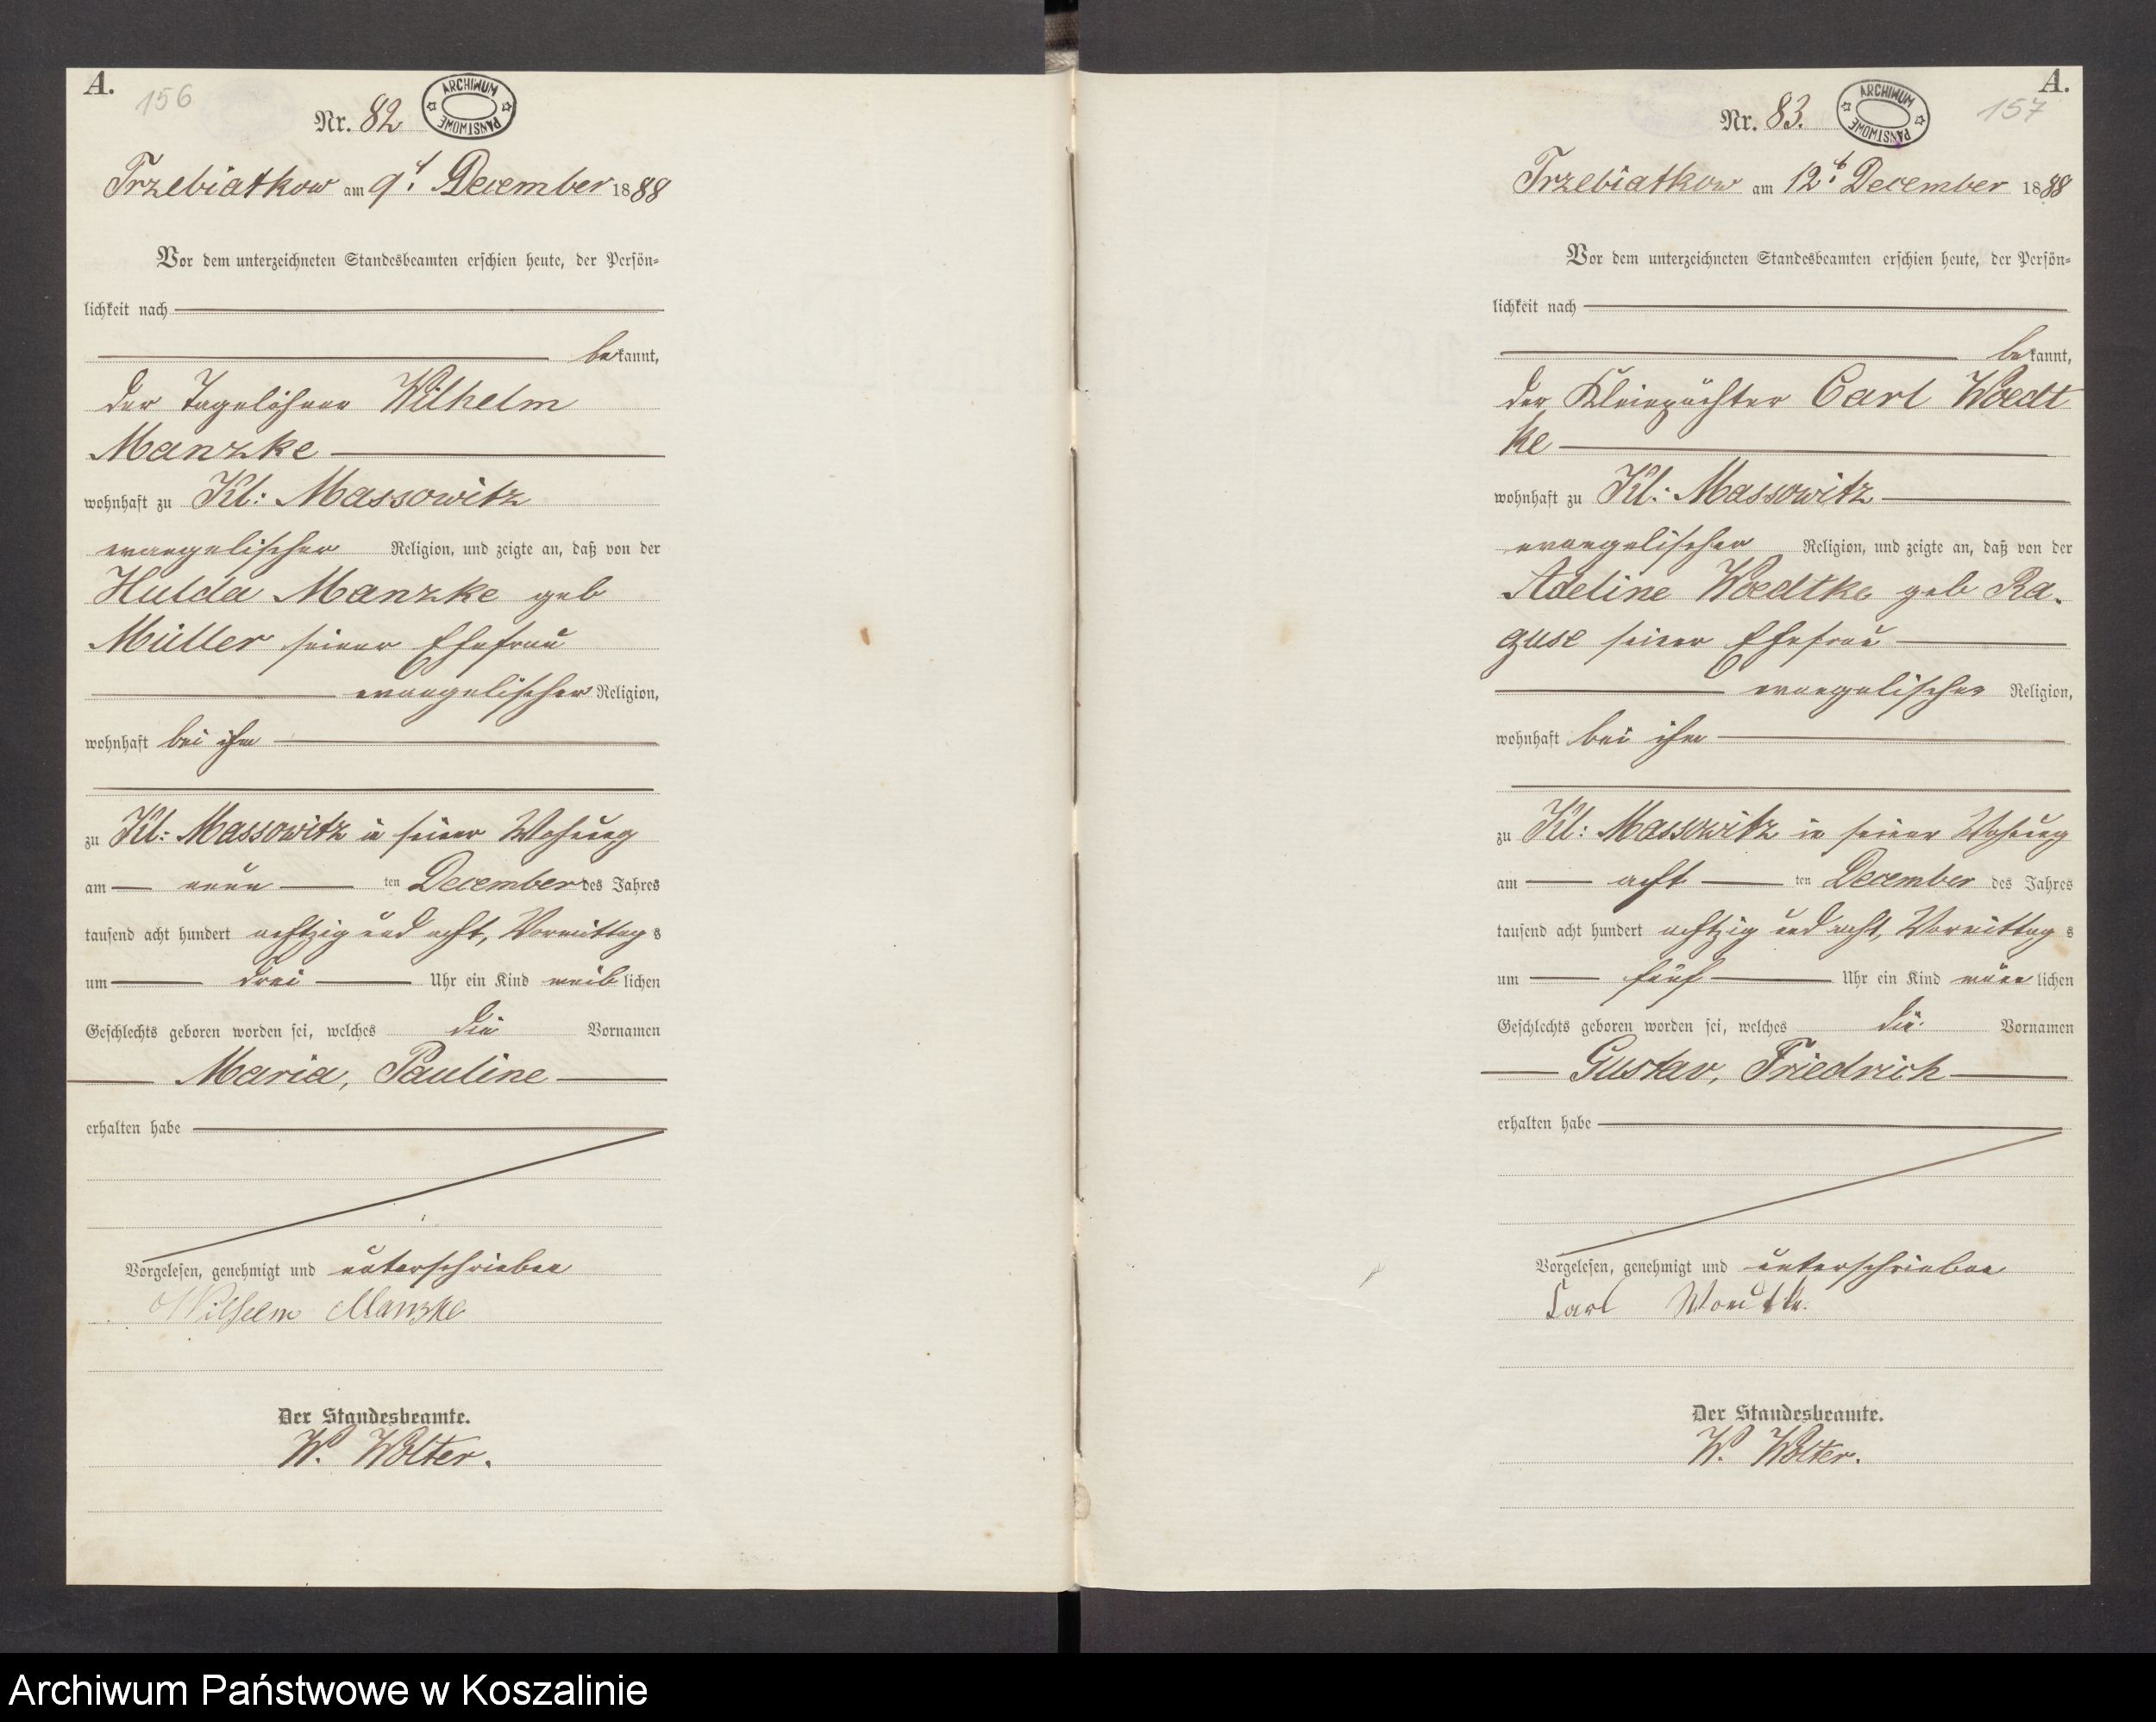 A.
156
Nr. 82
ARCHIWUM PAŃSTWOWE
Trzebiatkow am 9t. December 1888
Vor dem unterzeichneten Standesbeamten erschien heute, der Persön-
lichkeit nach
bekannt,
der Tagelöhner Wilhelm
Manzke
wohnhaft zu Kl: Massowitz
evangelischer Religion, und zeigte an, daß von der
Hulda Manzke geb
Müller seiner Ehefrau
evangelischer Religion,
wohnhaft bei ihm
zu Kl: Massowitz in seiner Wohnung
am neun ten December des Jahres
tausend acht hundert achtzig und acht, Vormittags
um drei Uhr ein Kind weiblichen
Geschlechts geboren worden sei, welches die Vornamen
Maria, Pauline
erhalten habe
Vorgelesen, genehmigt und unterschrieben
Wilhelm Manzke
Der Standesbeamte.
W. Wolter.
A.
157
Nr. 83.
ARCHIWUM PAŃSTWOWE
Trzebiatkow am 12t. December 1888
Vor dem unterzeichneten Standesbeamten erschien heute, der Persön-
lichkeit nach
bekannt,
der Kleinpächter Carl Woedt
ke
wohnhaft zu Kl: Massowitz
evangelischer Religion, und zeigte an, daß von der
Adeline Woedtke geb Ra-
guse seiner Ehefrau
evangelischer Religion,
wohnhaft bei ihm
zu Kl: Massowitz in seiner Wohnung
am acht ten December des Jahres
tausend acht hundert achtzig und acht, Vormittags
um fünf Uhr ein Kind männlichen
Geschlechts geboren worden sei, welches die Vornamen
Gustav, Friedrich
erhalten habe
Vorgelesen, genehmigt und unterschrieben
Carl Woedtke.
Der Standesbeamte.
W. Wolter.
Archiwum Państwowe w Koszalinie